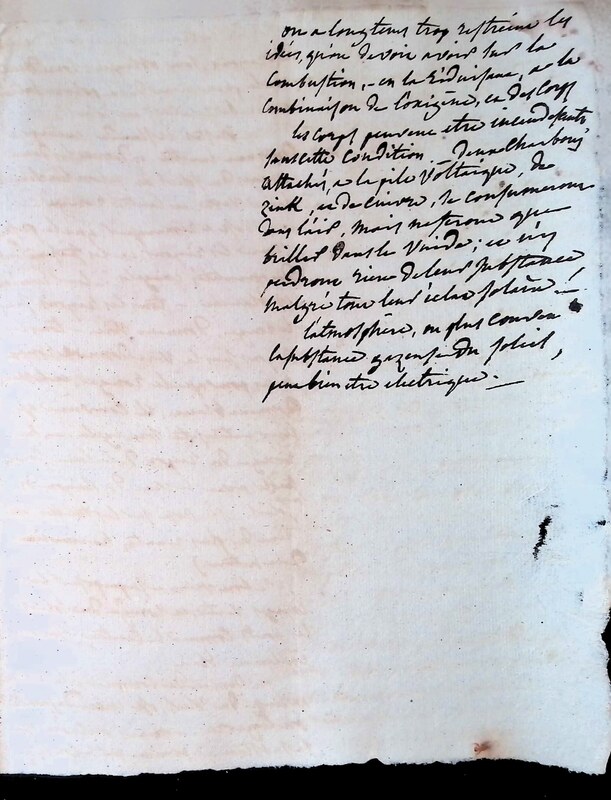 on a longtems trop restreint les
idées, qu'on devoit avoir sur la
Combustion, en la réduisant, a la
Combinaison de l'oxigène, et des Corps
les corps peuvent etre incandescents
sans cette Condition. Deux Charbons
attachés, a la pile Voltaïque, de
zink, et de Cuivre, se consumeront
dans l'air, mais ne feront que
briller dans le Vuide; et n'y
perdront rien de leur substance
malgré tout leur éclat solaire!
l'atmosphère, ou plus
la substance gazeuse du soleil,
peut bien etre electrique.